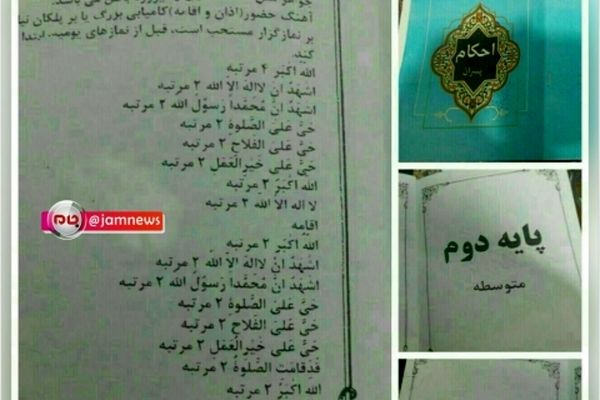 آهنگ حضور(اذان و اقامه)کامیابی بزرگ یا بر پلکان
بر نمازگزار مستحب است، قبل از نمازهای یومیه، ابتدا
کند.
الله اکبر ۴ مرتبه
اشهد ان لااله الا الله ۲ مرتبه
اشهد ان محمدا رسول الله ۲ مرتبه
حَیَّ عَلیَ الصَّلوة ۲ مرتبه
حَیَّ عَلیَ الفَلاح ۲ مرتبه
حَیَّ علی خَیرِالعَمَلِ ۲ مرتبه
الله اکبَرَ ۲ مرتبه
لا اله الا الله ۲ مرتبه
اقامه
الله اکبر ۲ مرتبه
اشهد ان لااله الا الله ۲ مرتبه
اشهد ان محمدا رسول الله ۲ مرتبه
حَیَّ عَلیَ الصَّلوة ۲ مرتبه
حَیَّ عَلیَ الفَلاح ۲ مرتبه
حَیَّ عَلی خَیرِالعَمَلِ ۲ مرتبه
قَدقامَت الصَّلوةُ ۲ مرتبه
الله اکبَر ۲ مرتبه
جام @jamnews
احکام
پسران
پایه دوم
متوسطه